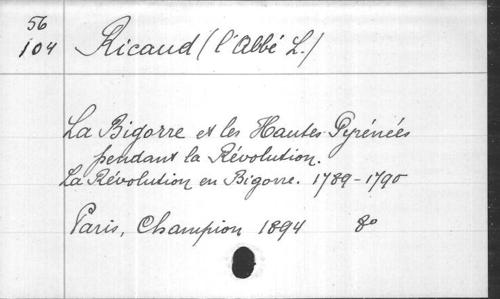 56
104
Ricaud (l'abbé L.)
La Bigorre et les Hautes-Pyrénées
pendant la Révolution.
La Révolution en Bigorre. 1789-1790
Paris, Champion 1894 8o